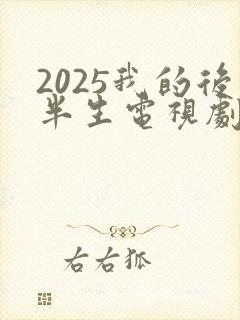 2025我的後
半生電視劇
右右狐